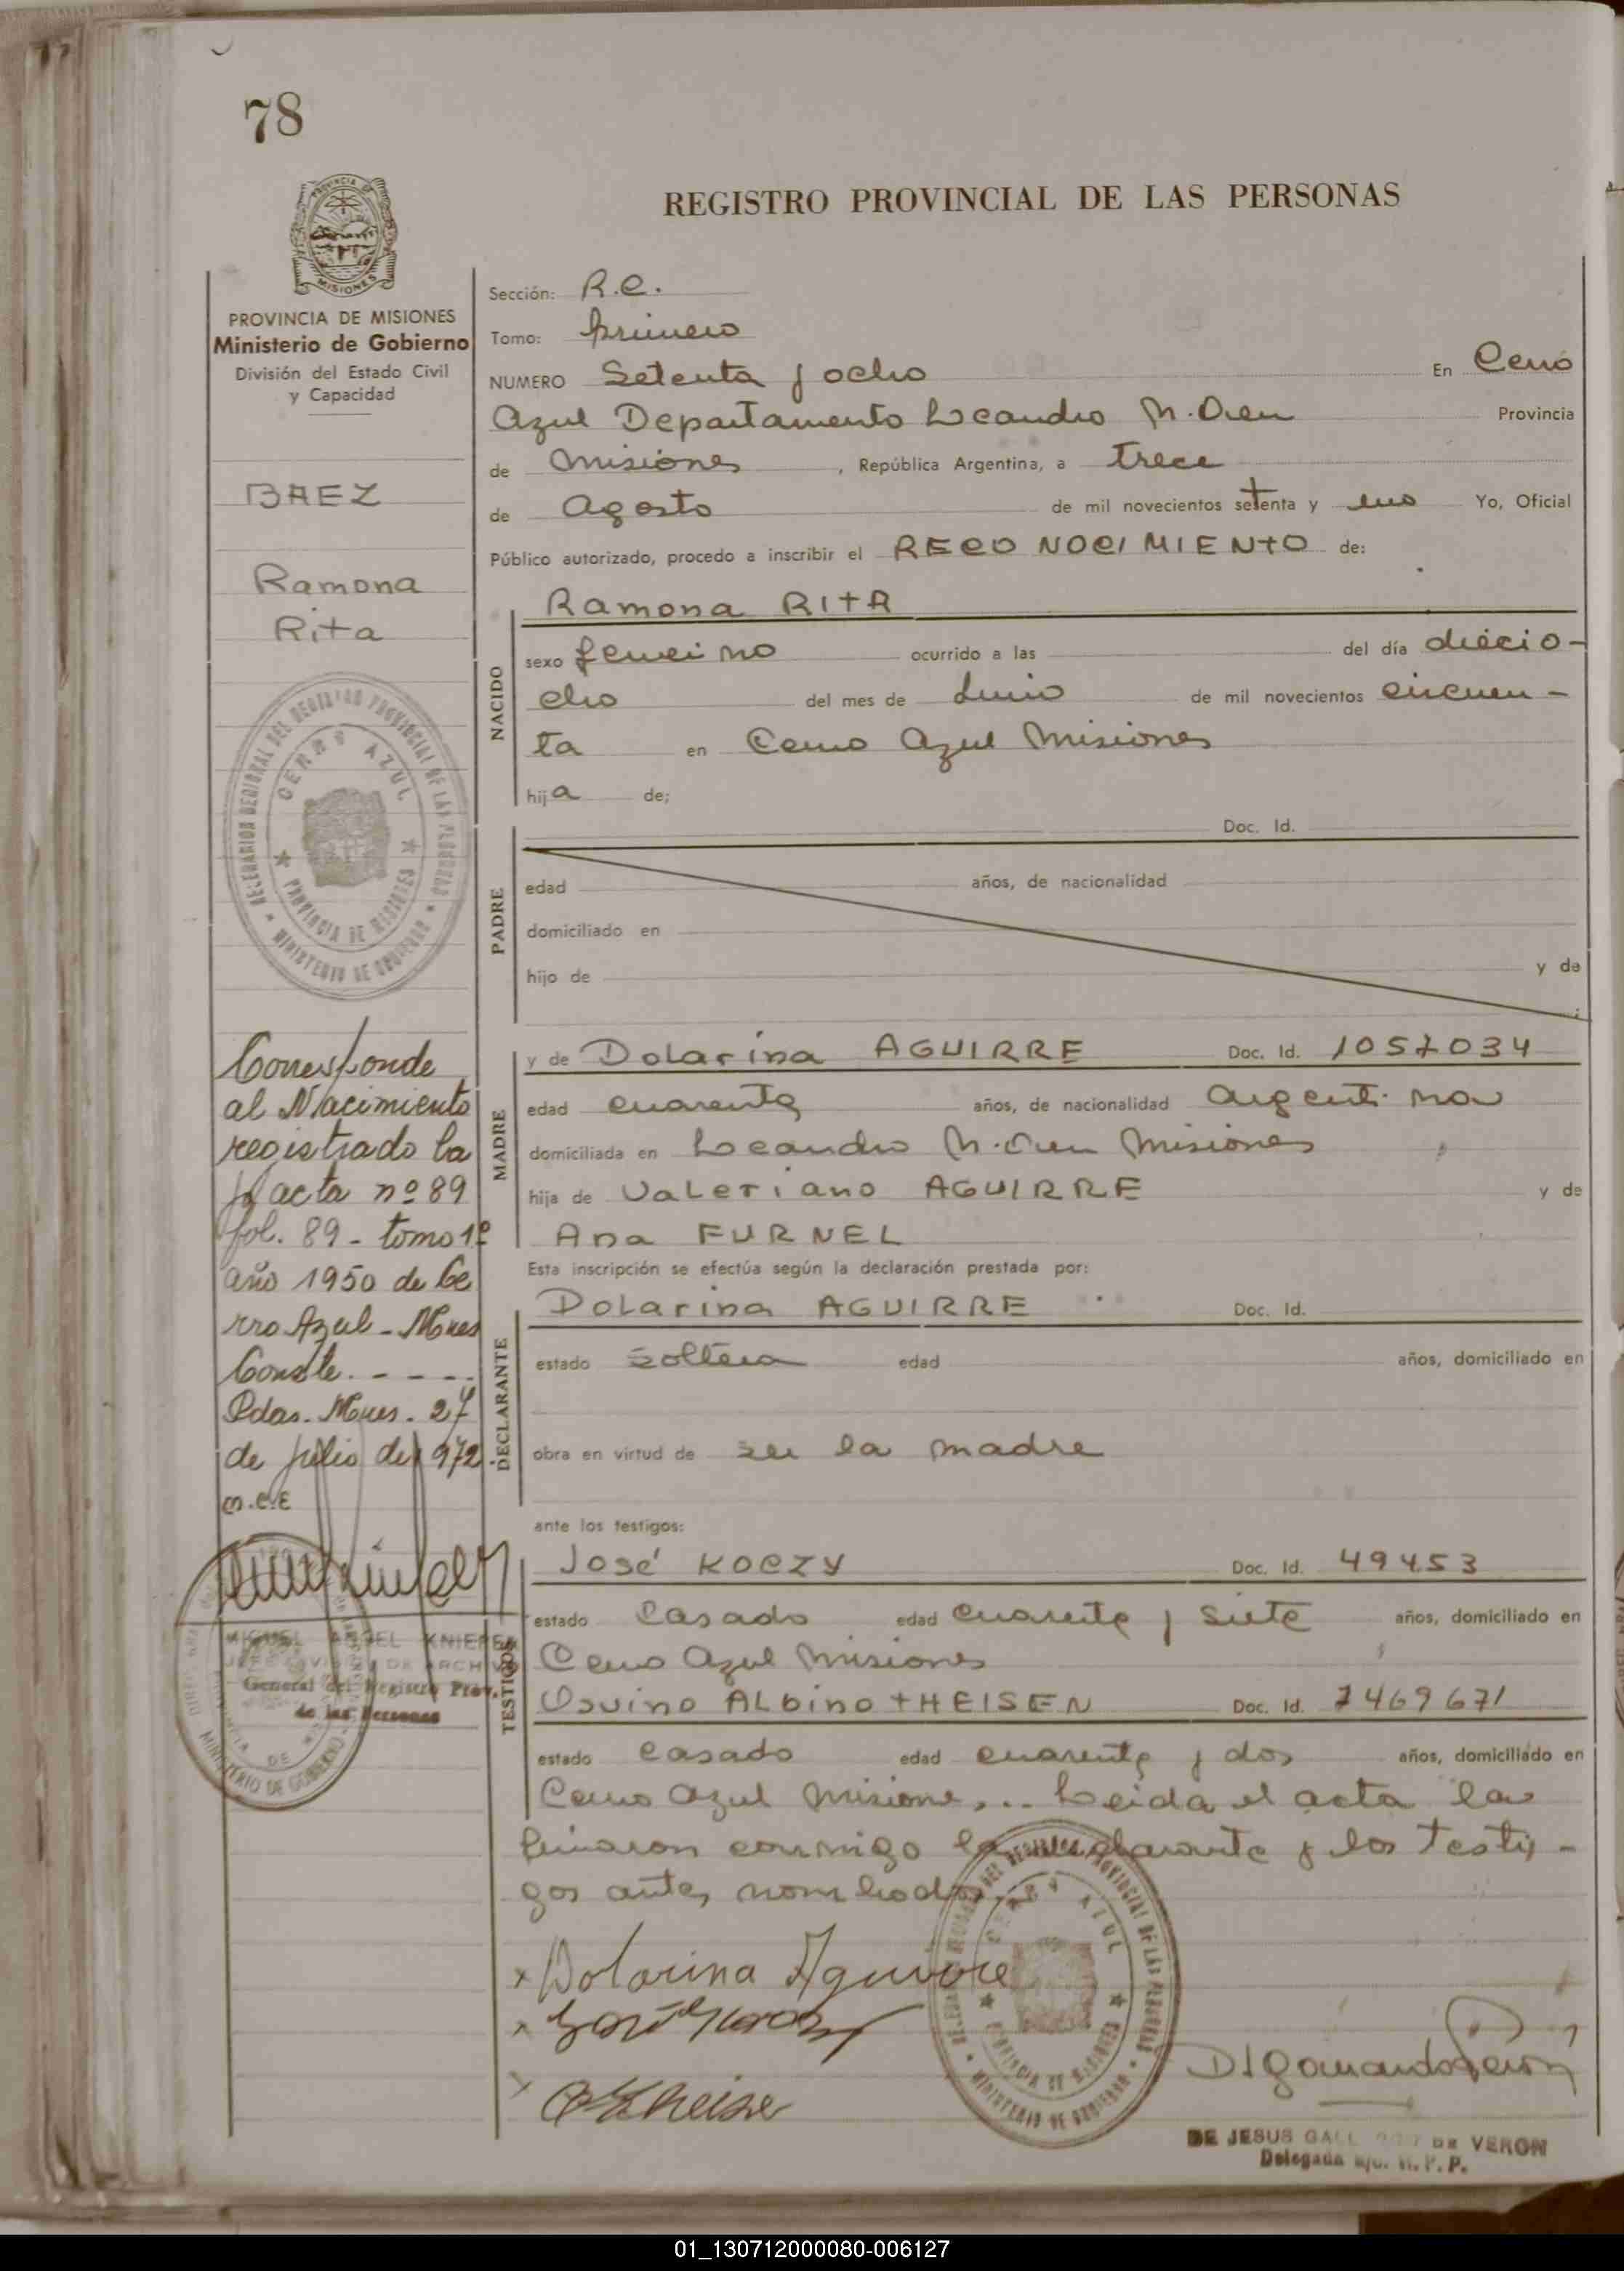 78
REGISTRO PROVINCIAL DE LAS PERSONAS
PROVINCIA DE MISIONES
Ministerio de Gobierno
División del Estado Civil
y Capacidad
BAEZ
Ramona
Rita
Corresponde
al Nacimiento
registrado la
acta nº 89
fol. 89 - tomo 1º
año 1950 de Ce
rro Azul - Mnes
Conste. - - - -
Pdas. Mnes. 27
de julio de 1972
m.c.E
MIGUEL ANGEL KNIEPER
JEFE DIVISION DE ARCHIVO
General del Registro Prov.
de las Personas
Sección: R.C.
Tomo: primero
NUMERO Setenta y ocho En Cerro
Azul Departamento Leandro N. Alem Provincia
de Misiones, República Argentina, a trece
de Agosto de mil novecientos setenta y uno Yo, Oficial
Público autorizado, procedo a inscribir el RECONOCIMIENTO de:
NACIDO
Ramona RITA
sexo femenino ocurrido a las del día diecio-
cho del mes de Junio de mil novecientos cincuen-
ta en Cerro Azul Misiones
hija de;
PADRE
Doc. Id.
edad años, de nacionalidad
domiciliado en
hijo de y de
MADRE
y de Dolarina AGUIRRE Doc. Id. 1057034
edad cuarenta años, de nacionalidad argentina
domiciliada en Leandro N. Alem Misiones
hija de Valeriano AGUIRRE y de
Ana FURNEL
Esta inscripción se efectúa según la declaración prestada por:
DECLARANTE
Dolarina AGUIRRE Doc. Id.
estado soltera edad años, domiciliado en
obra en virtud de ser la madre
ante los testigos:
TESTIGOS
José KOCZY Doc. Id. 49453
estado Casado edad cuarenta y siete años, domiciliado en
Cerro Azul Misiones
Osvino Albino THEISEN Doc. Id. 7469671
estado casado edad cuarenta y dos años, domiciliado en
Cerro Azul Misiones,.. Leida el acta la
firmaron conmigo la declarante y los testi-
gos antes nombrados
x Dolarina Aguirre
DE JESUS DE VERON
Delegada R. P. P.
DELEGACION REGIONAL DEL REGISTRO PROVINCIAL DE LAS PERSONAS
CERRO AZUL
PROVINCIA DE MISIONES
MINISTERIO DE GOBIERNO
01_130712000080-006127